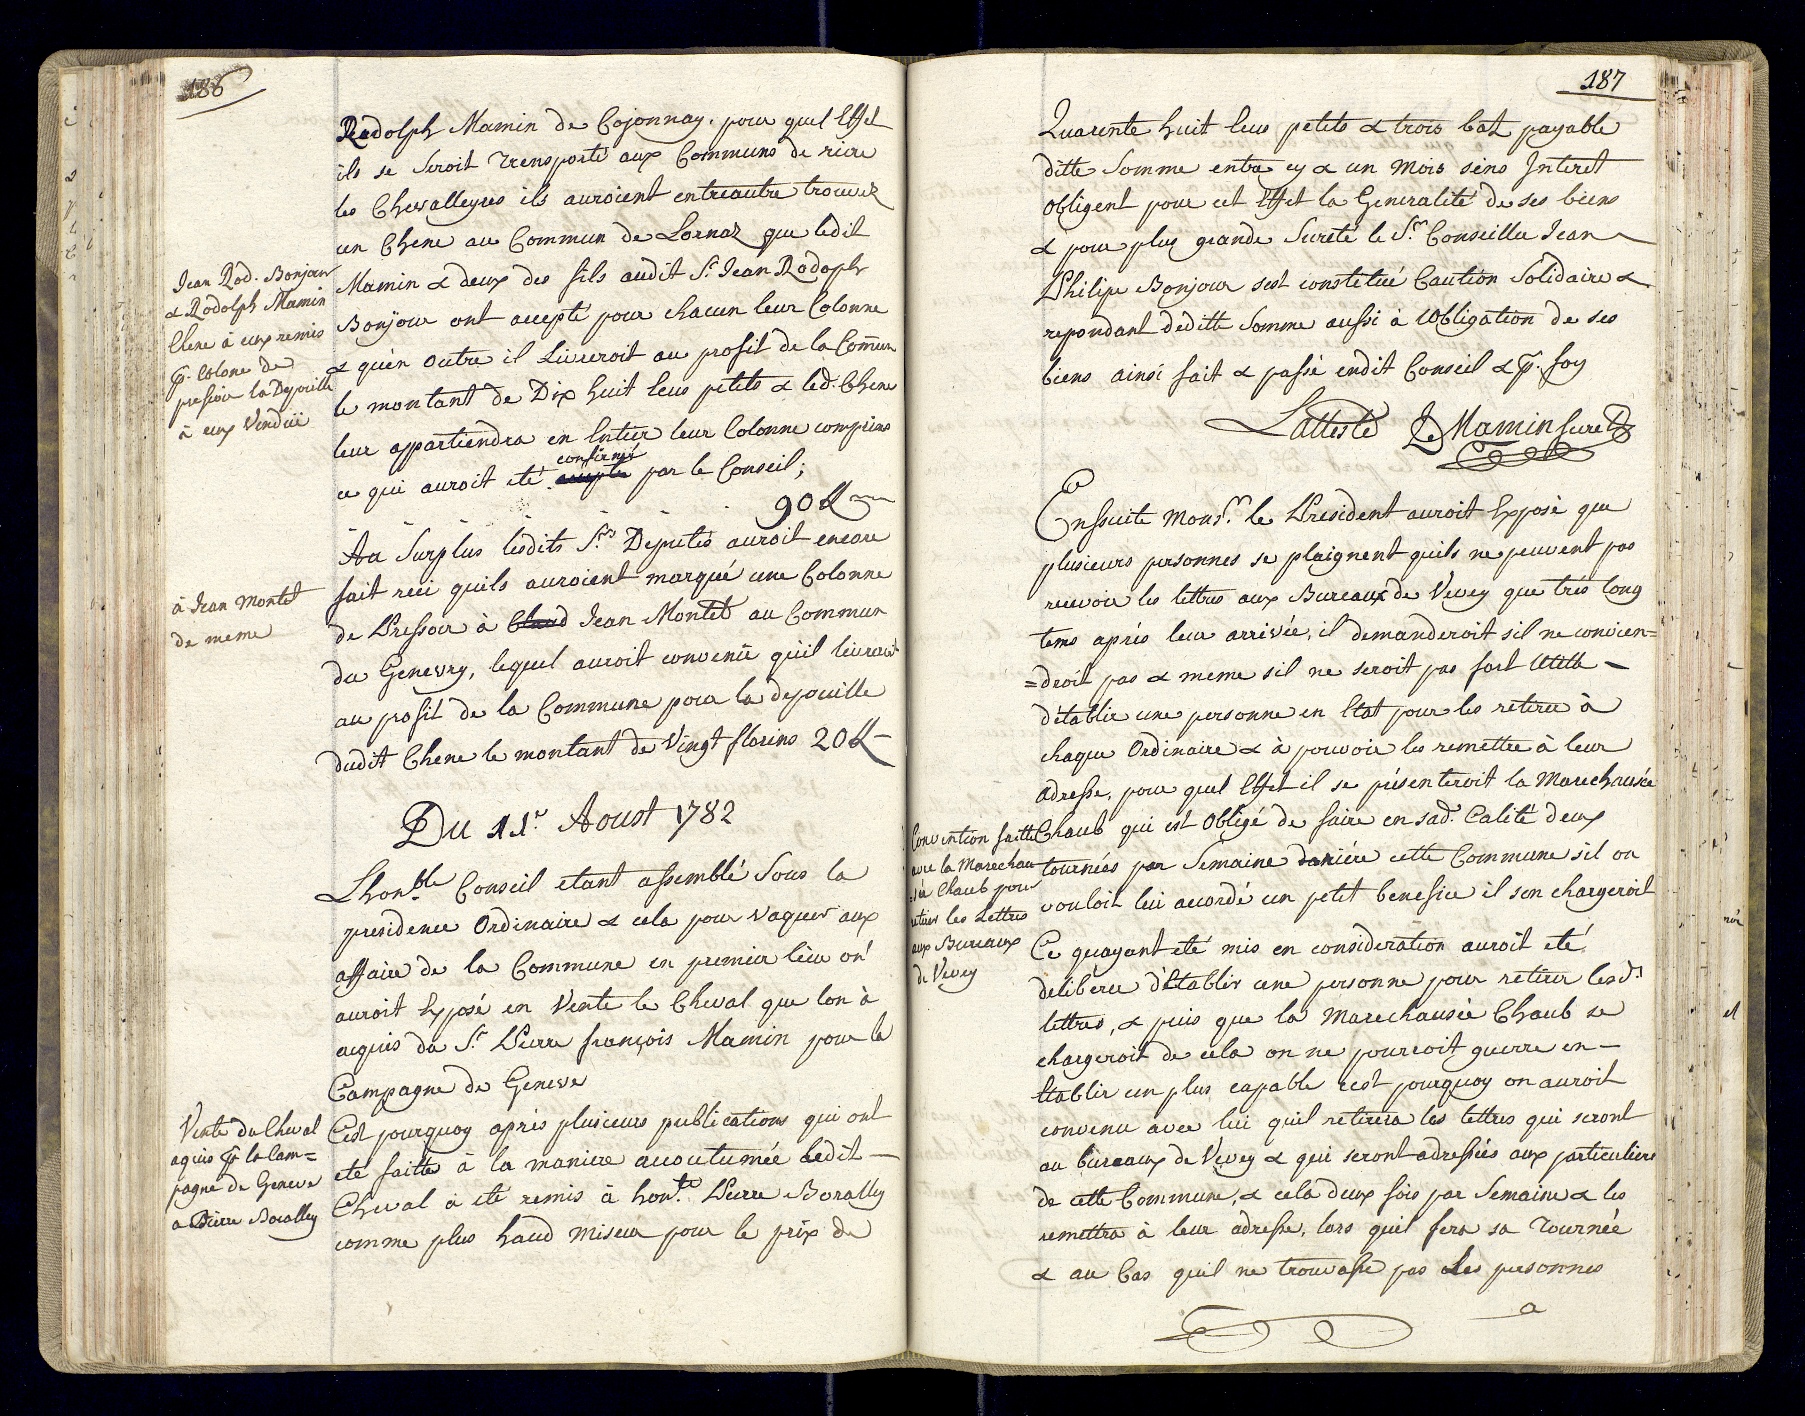 186
Rodolph Mamin de Cojonnay, pour quel Effet
ils se Seroit Trensporté aux Communs de riere
les Chevalleyres ils auroient entreautre trouvez
un Chene au Commun de Lornaz que ledit
Mamin & deux des fils audit Sr. Jean Rodolph
Bonjour ont accepté pour chacun leur Colonne
& quèn outre il Livreroit au profit de la Comune
le montant de Dix huit leus petits & led. Chene
leur appartiendra en Entier leur Colonne comprins
ce qui auroit eté confirmé par le Conseil;
90 ff
Au Surplus lesdits Srs. Deputés auroit encore
fait reci quils auroient marqué une Colonne
de Pressoir à Jean Montet au Commun
du Genevry, lequel auroit convenü quil livreroit
au profit de la Commune pour la depouille
dudit Chene le montant de Vingt florins 20 ff
Jean Rod. Bonjour
& Rodolph Mamin
Chene à eux remis
pr. Colone de
pressoir la Depouille
à eux Vendüe
à Jean Montet
de meme
Du 11r. Aoust 1782
Lhonble. Conseil etant assemblé Sous la
presidence Ordinaire & cela pour vaquer aux
affaire de la Commune en premier lieu on
auroit Exposé en Vente le Cheval que lon à
acquis du Sr. Pierre françois Mamin pour la
Campagne de Geneve
Cest pourquoy aprés plusieurs publications qui ont
eté faitte à la maniere accoutumée ledit
Cheval a eté remis à honte. Pierre Boralley
comme plus haud miseur pour le prix de
Vente du Cheval
aquis pr. la Cam=
pagne de Geneve
a Pierre Boralley
187
Quarente huit leus petits & trois batz payable
ditte Somme entre cy & un mois sens Interet
Obligent pour cet Effet la Generalité de ses biens
& pour plus grande Sureté le Sr. Conseiller Jean
Philipe Bonjour sest constitué Caution Solidaire &
repondant deditte Somme aussi à lObligation de ses
biens ainsi fait & passé endit Conseil & pr. foy
Lattesté Mamin Secret
Enssuite Monsr. le President auroit Exposé que
plusieurs personnes se plaignent quils ne peuvent pas
recevoir les lettres aux Bureaux de Vevey que trés long
tems aprés leur arrivée, il demanderoit sil ne convien=
=droit pas & meme sil ne seroit pas fort Utille
détablir une personne en Etat pour les retirer à
chaque Ordinaire & à pouvoir les remettre à leur
adresse, pour quel Effet il se présenteroit la Marechausée
Chaub qui est Obligé de faire en sad. Calité deux
tournées par Semaine dariére cette Commune sil on
vouloit lui accordé un petit benefice il sen chargeroit
Ce quayant eté mis en consideration auroit eté
deliberer d'Etablir une personne pour retirer lesds.
lettres, & puis que la Marechausée Chaub se
chargeroit de cela on ne pourroit guerre en
Etablir un plus capable cest pourquoy on auroit
convenu avec lui quil retirera les lettres qui seront
au bureaux de Vevey & qui seront adressées aux particuliers
de cette Commune, & cela deux fois par Semaine & les
remettra à leur adresse, lors quil fera sa Tournée
& au Cas quil ne trouvasse pas Les personnes
a
Convention faitte
avec la Marechau
=sée Chaub pour
retirer les Lettres
aux Bureaux
de Vevey